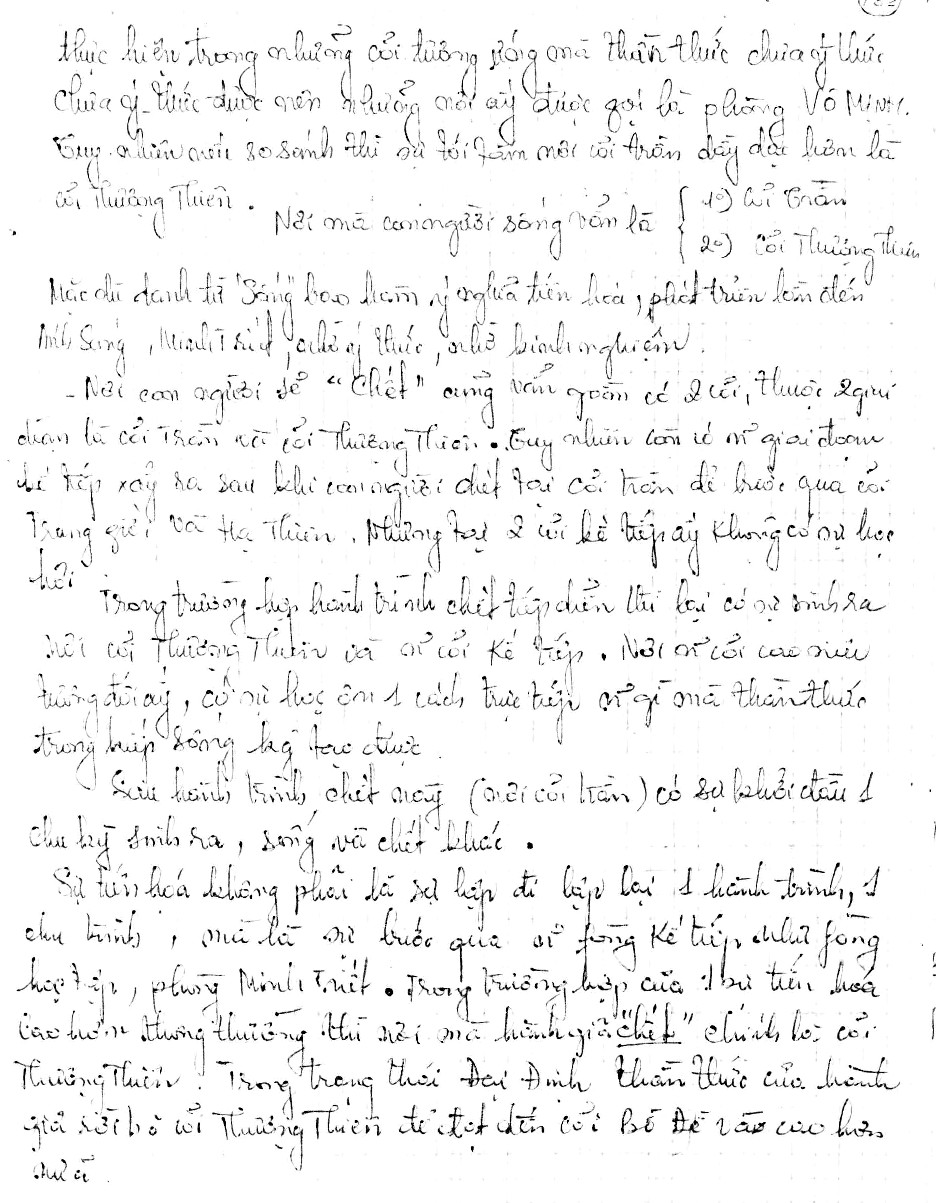 thực hiện trong những cõi tương ứng mà thần thức chưa ý thức
chưa ý thức được nên những nơi ấy được gọi là phòng VÔ MINH.
Tuy nhiên nếu so sánh thì sự tối tăm nơi cõi trần dầy đặc hơn là
cõi Thượng Thiên.
Nơi mà con người sống vẫn là { 1º) Cõi Trần
2º) Cõi Thượng Thiên
Mặc dù danh từ "Sống" bao hàm ý nghĩa tiến hoá, phát triển lần đến
Ánh Sáng, Minh Triết, nhờ ý thức, nhờ kinh nghiệm.
- Nơi con người sẽ "Chết" cũng vẫn gồm có 2 cõi, thuộc 2 giai
đoạn là cõi Trần và cõi Thượng Thiên. Tuy nhiên còn có giai đoạn
kế tiếp xảy ra sau khi con người chết tại cõi trần để bước qua cõi
Trung giới và Hạ Thiên. Nhưng tại 2 cõi kế tiếp ấy không có sự học
hỏi
Trong trường hợp hành trình chết tiếp diễn thì lại có sự sinh ra
nơi cõi Thượng Thiên và cõi kế tiếp. Nơi cõi cao siêu
tương đối ấy, có sự học ôn 1 cách trực tiếp gì mà thần thức
trong kiếp sống tạo được.
Sau hành trình chết này (nơi cõi trần) có sự khởi đầu 1
chu kỳ sinh ra, sống và chết khác.
Sự tiến hoá không phải là sự lập đi lập lại 1 hành trình, 1
chu trình, mà là sự bước qua phòng kế tiếp như phòng
học tập, phòng Minh Triết. Trong trường hợp của 1 sự tiến hoá
cao hơn thông thường thì nơi mà hành giả "chết" chính là cõi
Thượng Thiên. Trong trạng thái Đại Định thần thức của hành
giả rời bỏ cõi Thượng Thiên để đạt đến cõi Bồ Đề cao hơn
nữa.